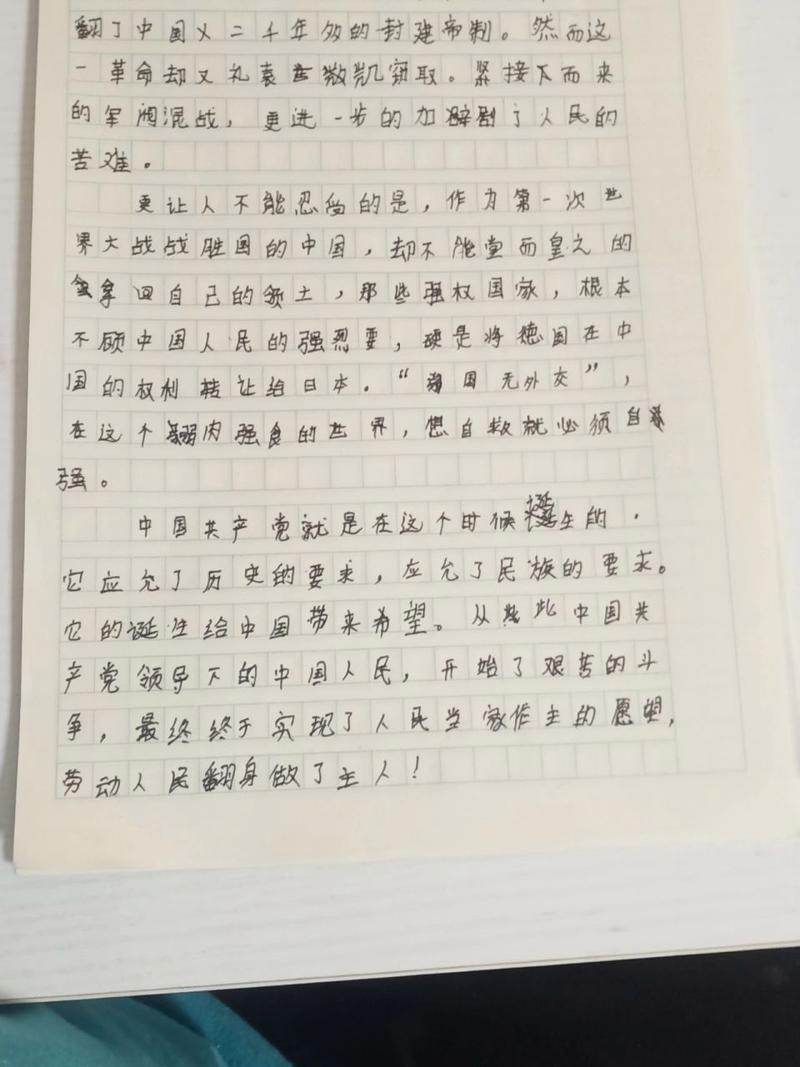 翻了中国二千年的封建帝制。然而这
一革命却又袁世凯窃取。紧接下而来
的军阀混战，更进一步的加剧了人民的
苦难。
更让人不能忍受的是，作为第一次世
界大战战胜国的中国，却不能堂而皇之的
拿回自己的领土，那些强权国家，根本
不顾中国人民的强烈要，硬是将德国在中
国的权利转让给日本。“弱国无外交”，
在这个弱肉强食的世界，想自救就必须自
强。
中国共产党就是在这个时候诞生的．
它应允了历史的要求，应允了民族的要求。
它的诞生给中国带来希望。从此中国共
产党领导下的中国人民，开始了艰苦的斗
争，最终终于实现了人民当家作主的愿望，
劳动人民翻身做了主人！